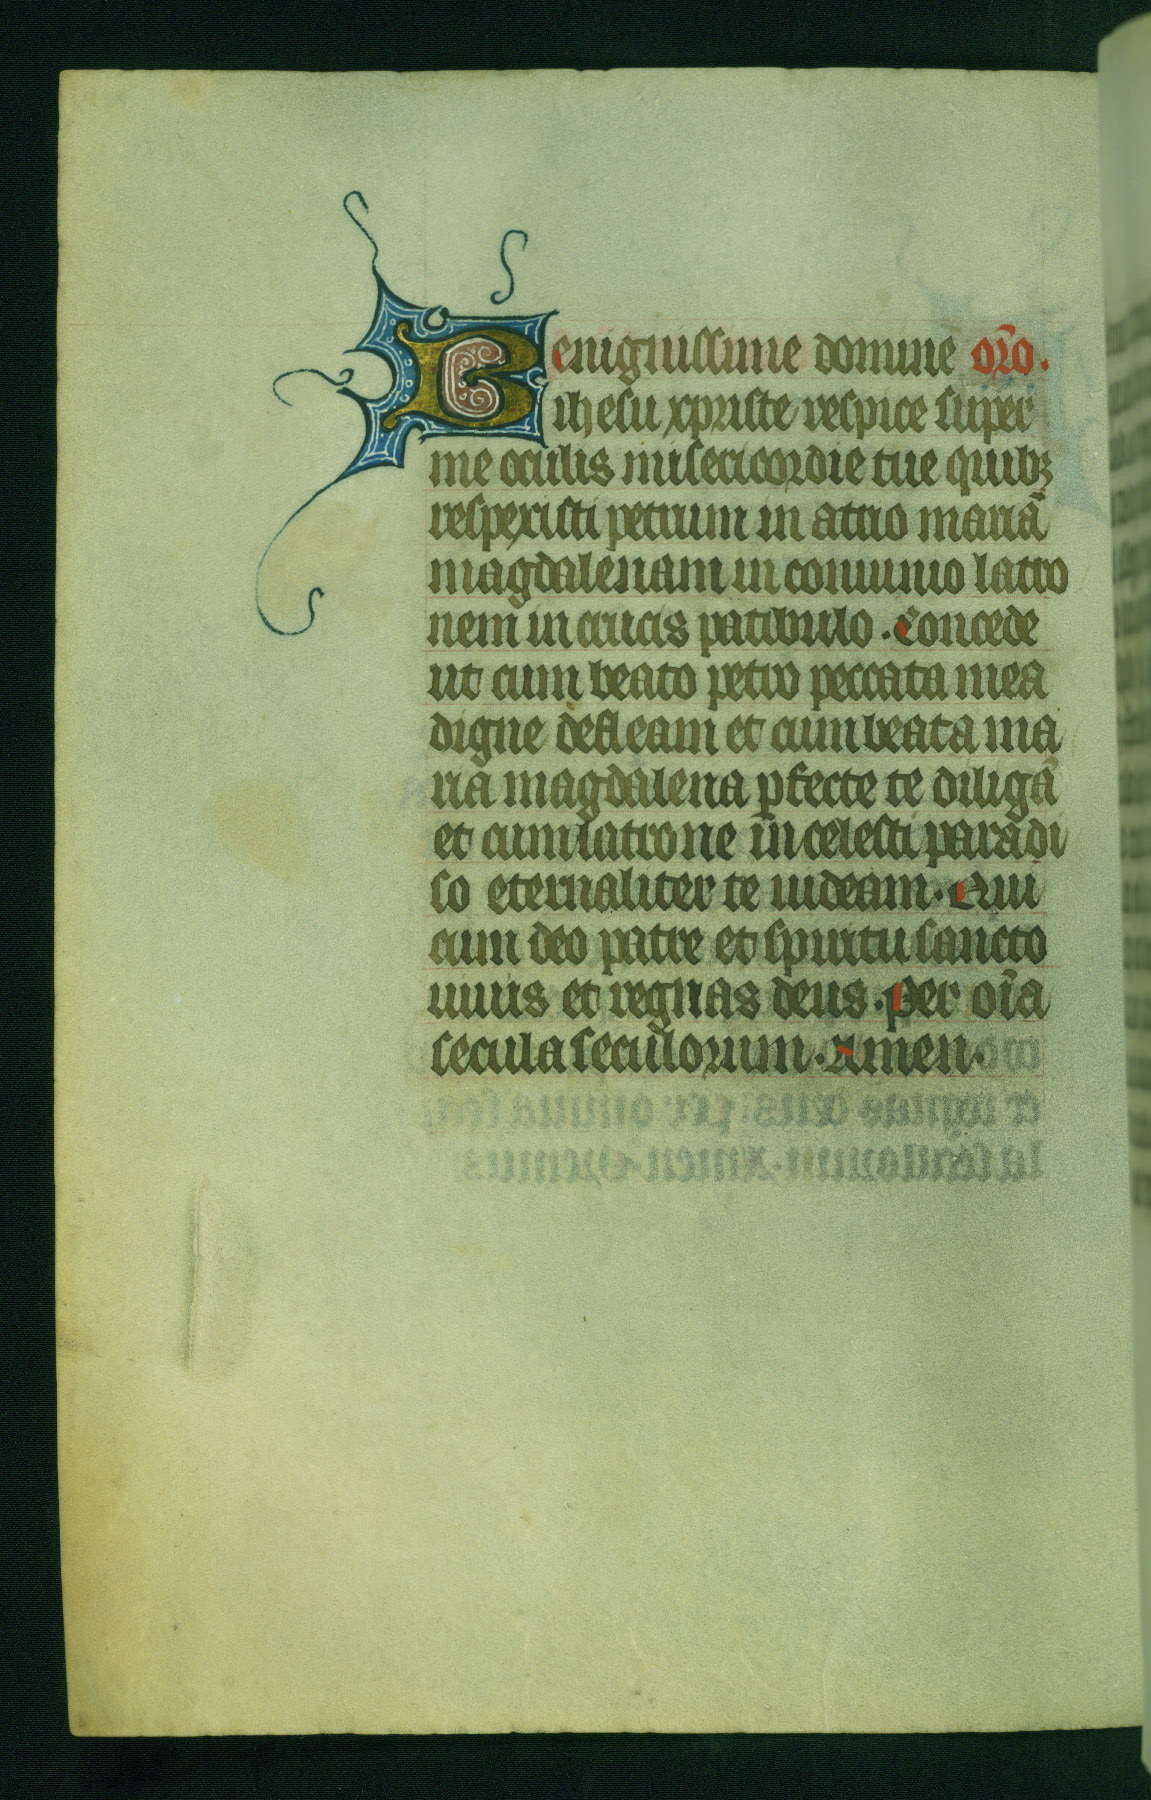 Benignissime domine or̄o.
ihesu xpriste respice super
me oculis misericordie tue quibꝫ
respexisti petrum in atrio mariā
magdalenam in conuiuio latro
nem in crucis patibulo. Concede
ut cum beato petro peccata mea
digne defleam et cum beata ma
ria magdalena ꝑfecte te diligā
et cum latrone in celesti paradi
so eternaliter te uideam. Qui
cum deo patre et spiritu sancto
uiuis et regnas deus. Per oīa
secula seculorum. Amen.